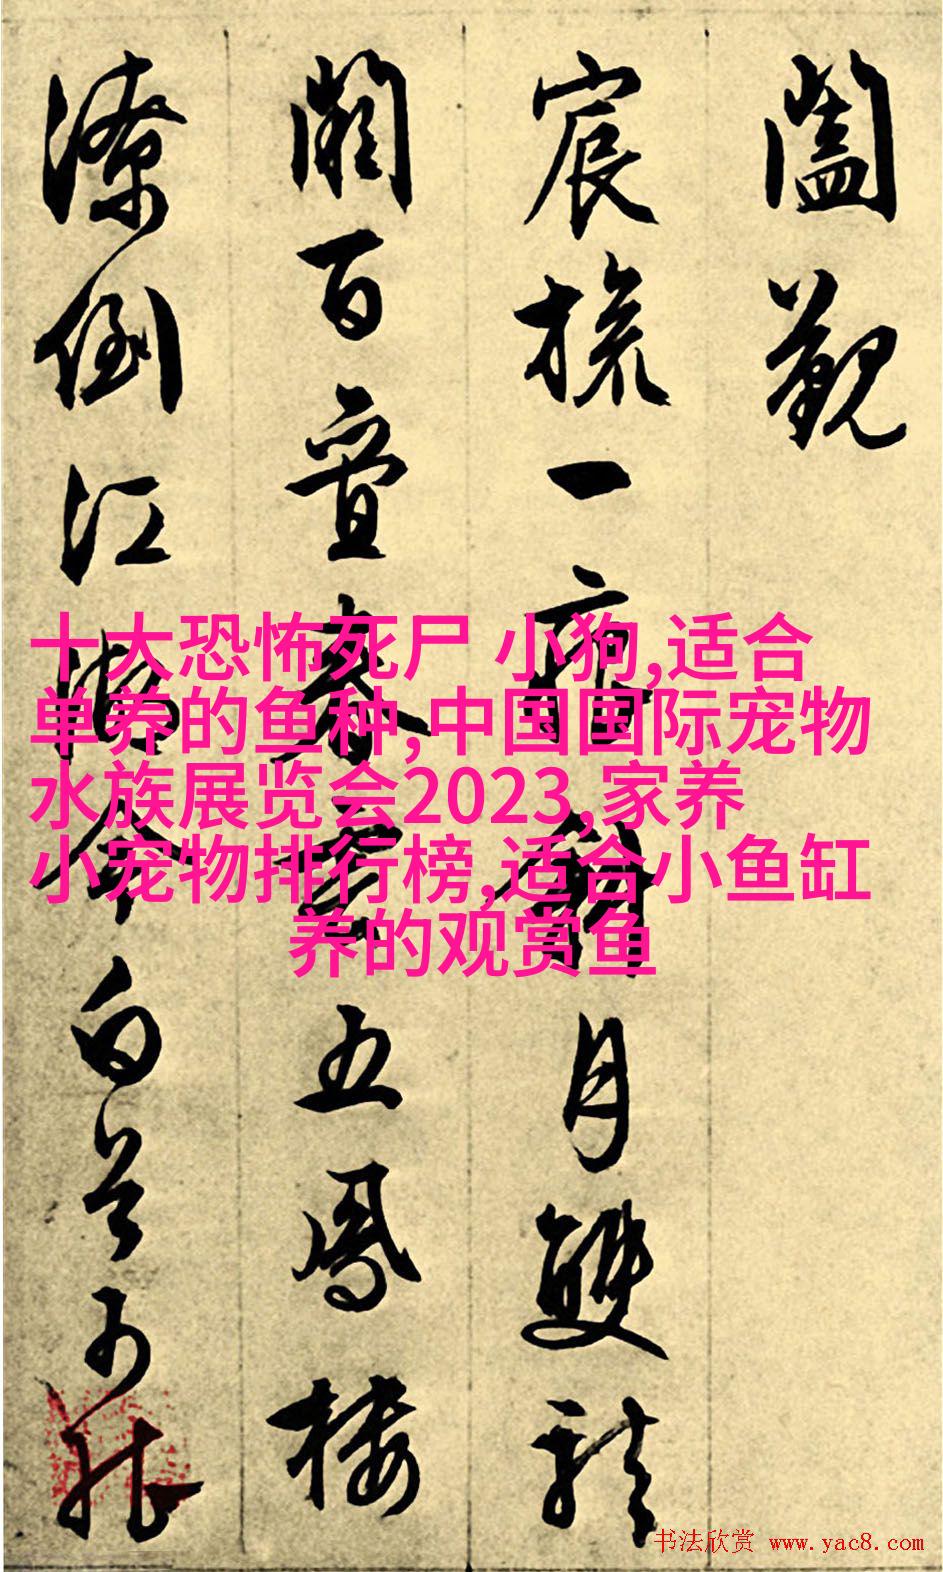 闔觀
宸旒一月雙龍
闕百春五鳳樓
潦倒江湖今白首
十大恐怖死尸 小狗,适合
单养的鱼种,中国国际宠物
水族展览会2023,家养
小宠物排行榜,适合小鱼缸
养的观赏鱼
书法欣赏 www.yac8.com